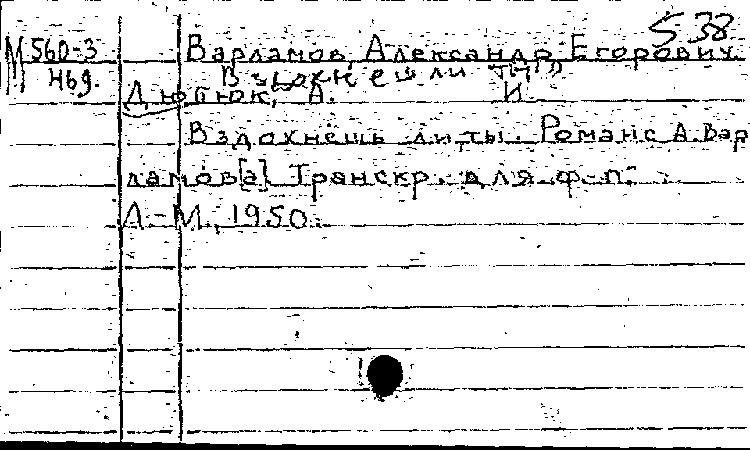 538
М 560-3 Варламов, Александр Егорович.
Н69. Вздохнешь ли ты"
Дютюк, А. И
Вздохнешь ли ты. Романс А. Вар
ламов[а] Транскр. для ф-п.
Л.-М., 1950.